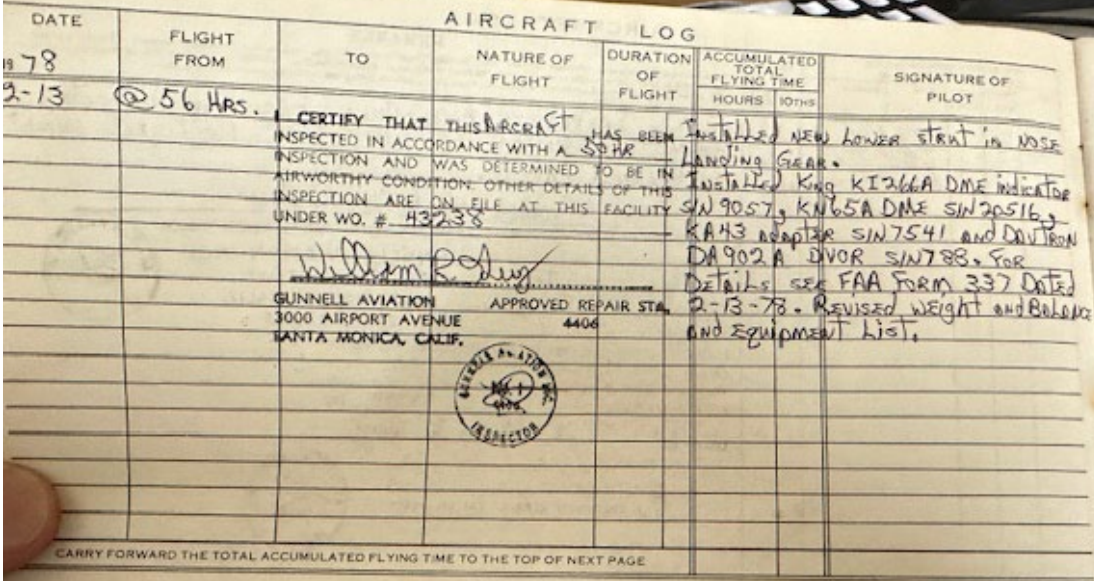 AIRCRAFT LOG
DATE
FLIGHT FROM
TO
NATURE OF FLIGHT
DURATION OF FLIGHT
ACCUMULATED TOTAL FLYING TIME
HOURS 10THS
SIGNATURE OF PILOT
1978
2-13 @ 56 HRS.
I CERTIFY THAT THIS AIRCRAFT HAS BEEN
INSPECTED IN ACCORDANCE WITH A 50 HR
INSPECTION AND WAS DETERMINED TO BE IN
AIRWORTHY CONDITION. OTHER DETAILS OF THIS
INSPECTION ARE ON FILE AT THIS FACILITY
UNDER WO. # 43238
William R.
GUNNELL AVIATION APPROVED REPAIR STA.
3000 AIRPORT AVENUE 4406
SANTA MONICA, CALIF.
GUNNELL AVIATION INC.
INSPECTOR
Installed new lower strut in nose
Landing Gear.
Installed King KI266A DME indicator
S/N 9057, KN65A DME S/N 20516,
KA43 adapter S/N 7541 and Davtron
DA902A DVOR S/N 788. For
Details see FAA Form 337 Dated
2-13-78. Revised weight and Balance
and equipment List.
CARRY FORWARD THE TOTAL ACCUMULATED FLYING TIME TO THE TOP OF NEXT PAGE